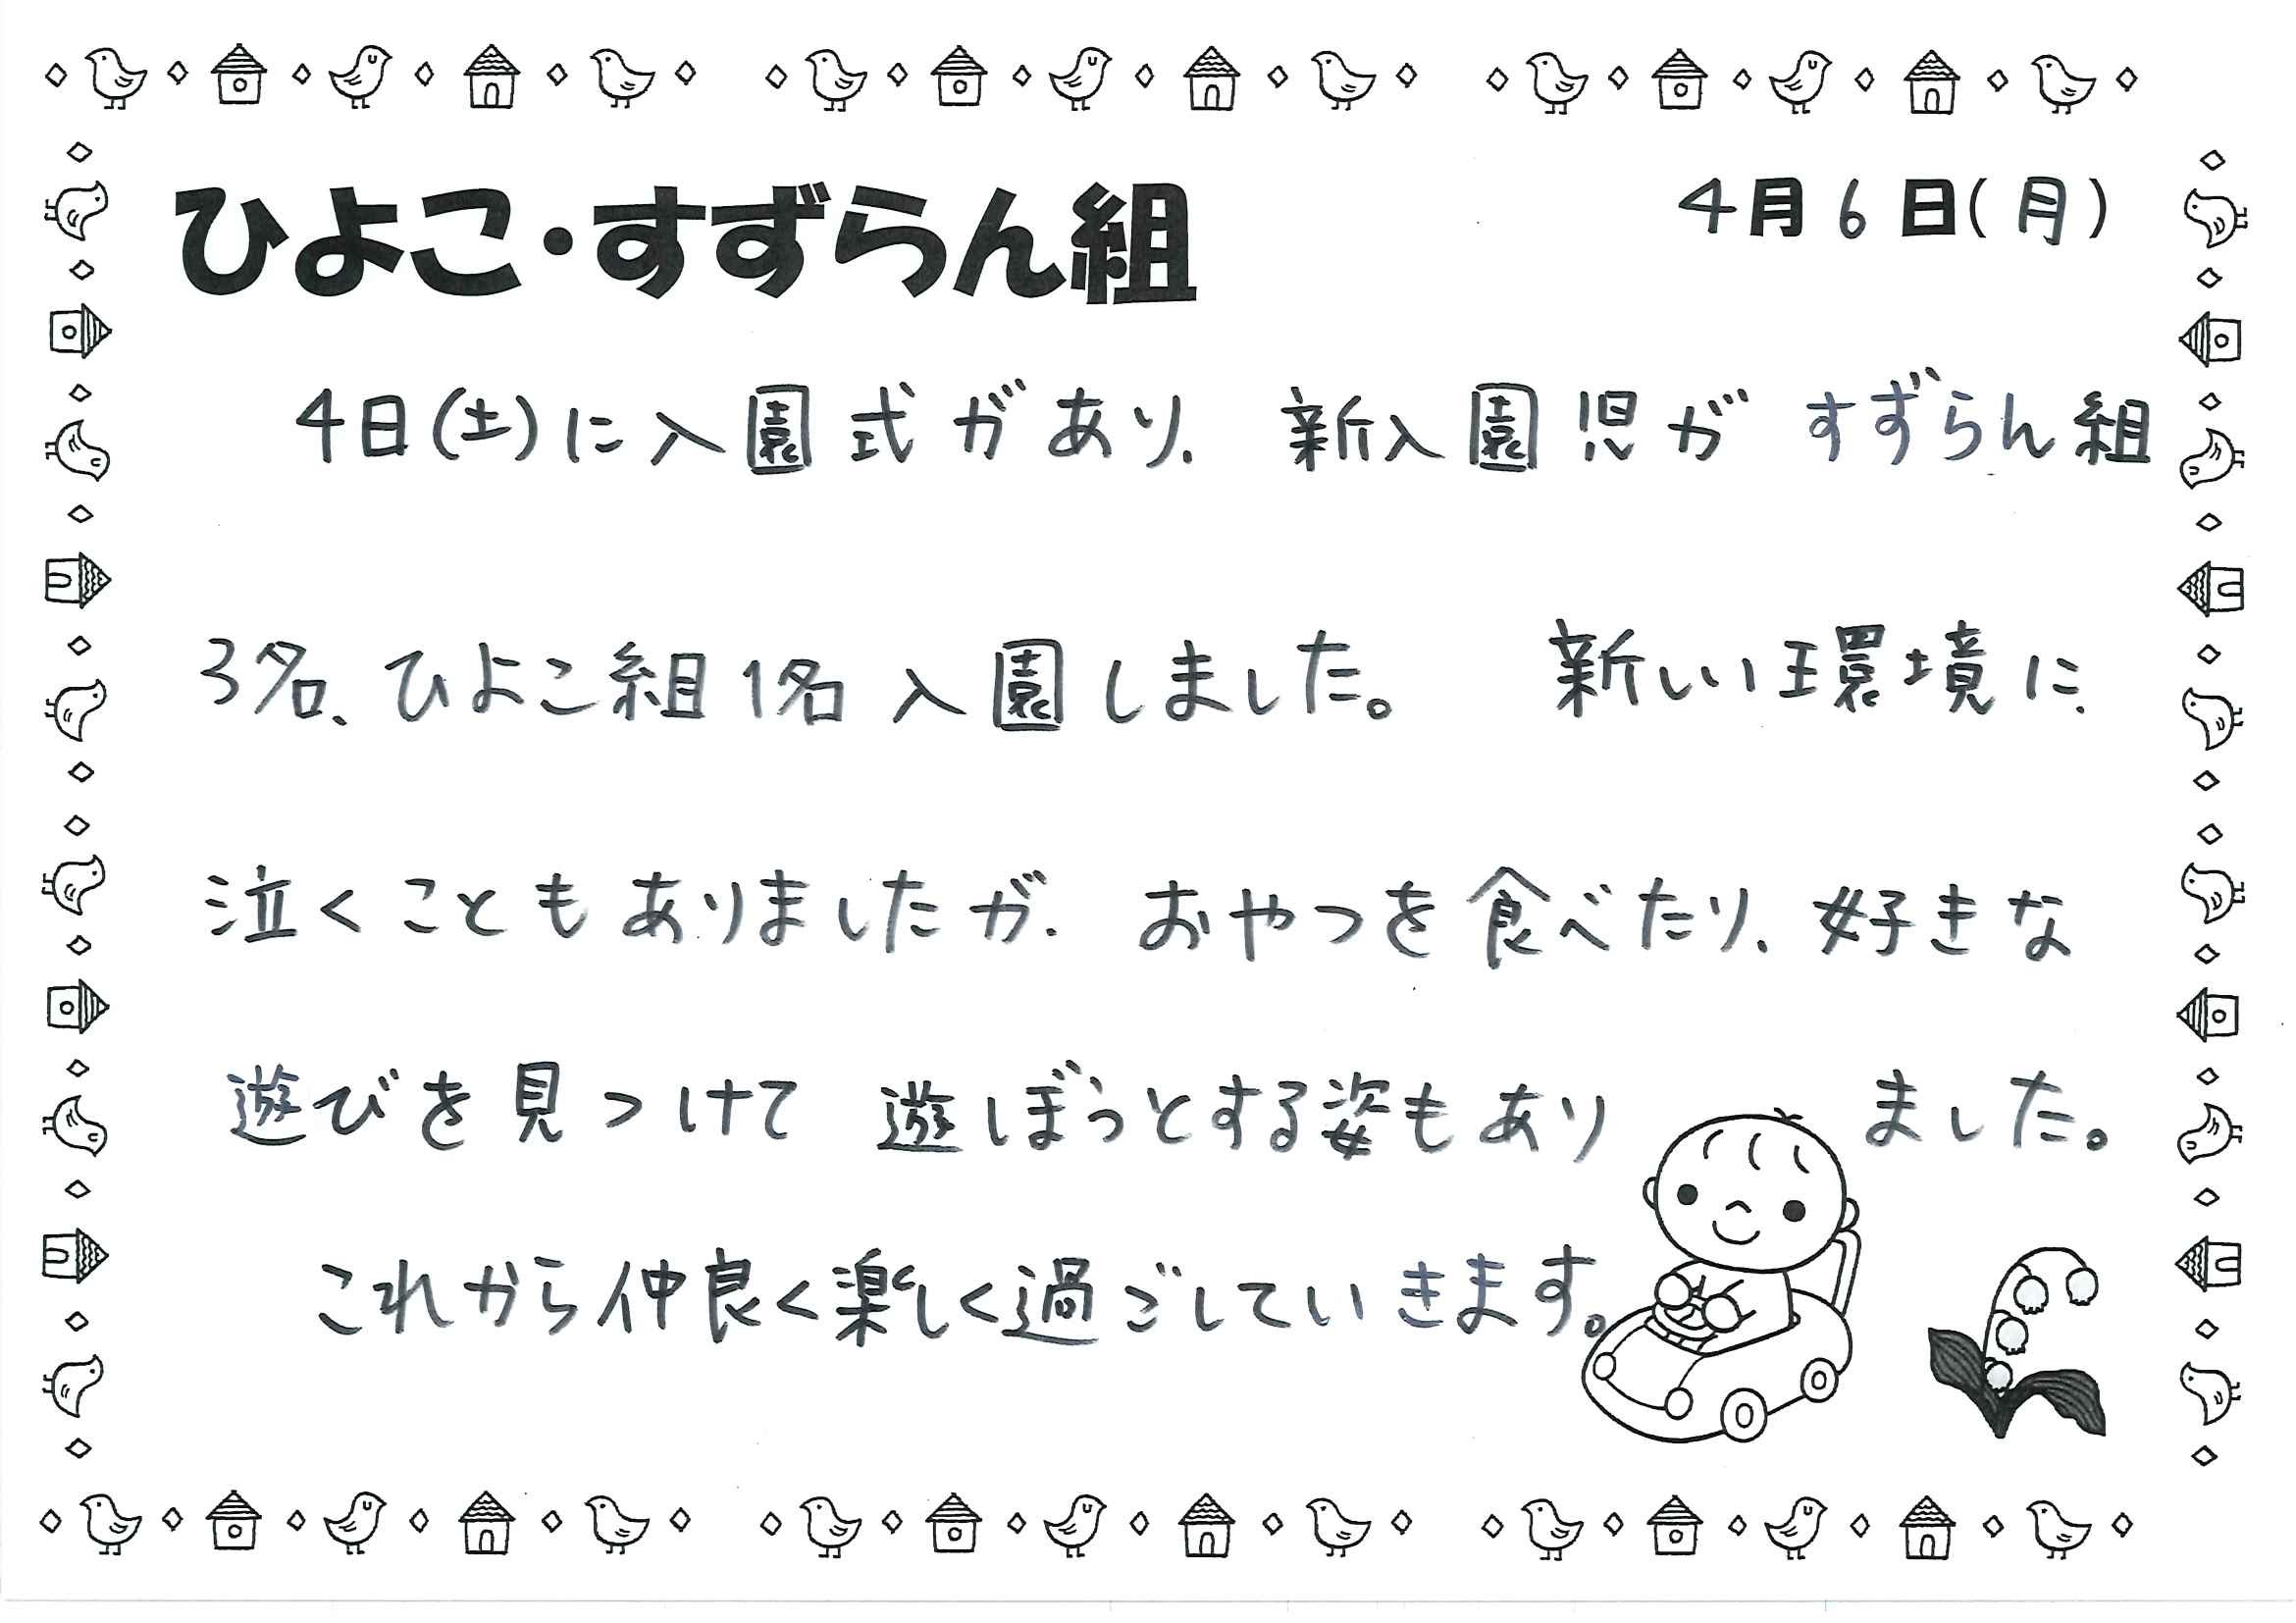 ひよこ・すずらん組
4月6日(月)
4日(土)に入園式があり、新入園児がすずらん組
3名、ひよこ組1名入園しました。 新しい環境に、
泣くこともありましたが、おやつを食べたり、好きな
遊びを見つけて 遊ぼうとする姿もあり ました。
これから仲良く楽しく過ごしていきます。